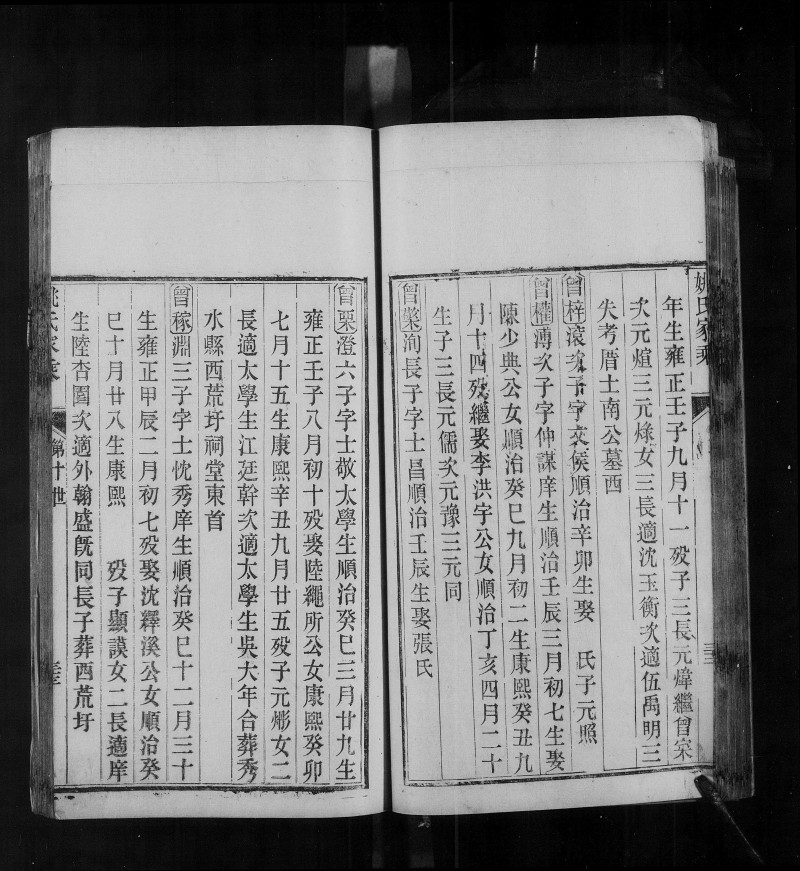 姚氏家乘
年生雍正壬子九月十一殁子三長元煒繼曾宋
次元煊三元烼女三長適沈玉衡次適伍禹明三
失考厝士南公墓西
曾梓滾次子字文候順治辛卯生娶　氏子元照
曾權漙次子字仲謀庠生順治壬辰三月初七生娶
陳少典公女順治癸巳九月初二生康熙癸丑九
月十四殁繼娶李洪宇公女順治丁亥四月二十
生子三長元儒次元豫三元同
曾業洵長子字士昌順治壬辰生娶張氏
曾栗澄六子字士敬太學生順治癸巳三月廿九生
雍正壬子八月初十殁娶陸繩所公女康熙癸卯
七月十五生康熙辛丑九月廿五殁子元彤女二
長適太學生江廷幹次適太學生吳大年合葬秀
水縣西荒圩祠堂東首
曾稼淵三子字士忱秀庠生順治癸巳十二月三十
生雍正甲辰二月初七殁娶沈釋溪公女順治癸
巳十月廿八生康熙　殁子顯謨女二長適庠
生陸杏園次適外翰盛旣同長子葬西荒圩
姚氏家乘
第十世